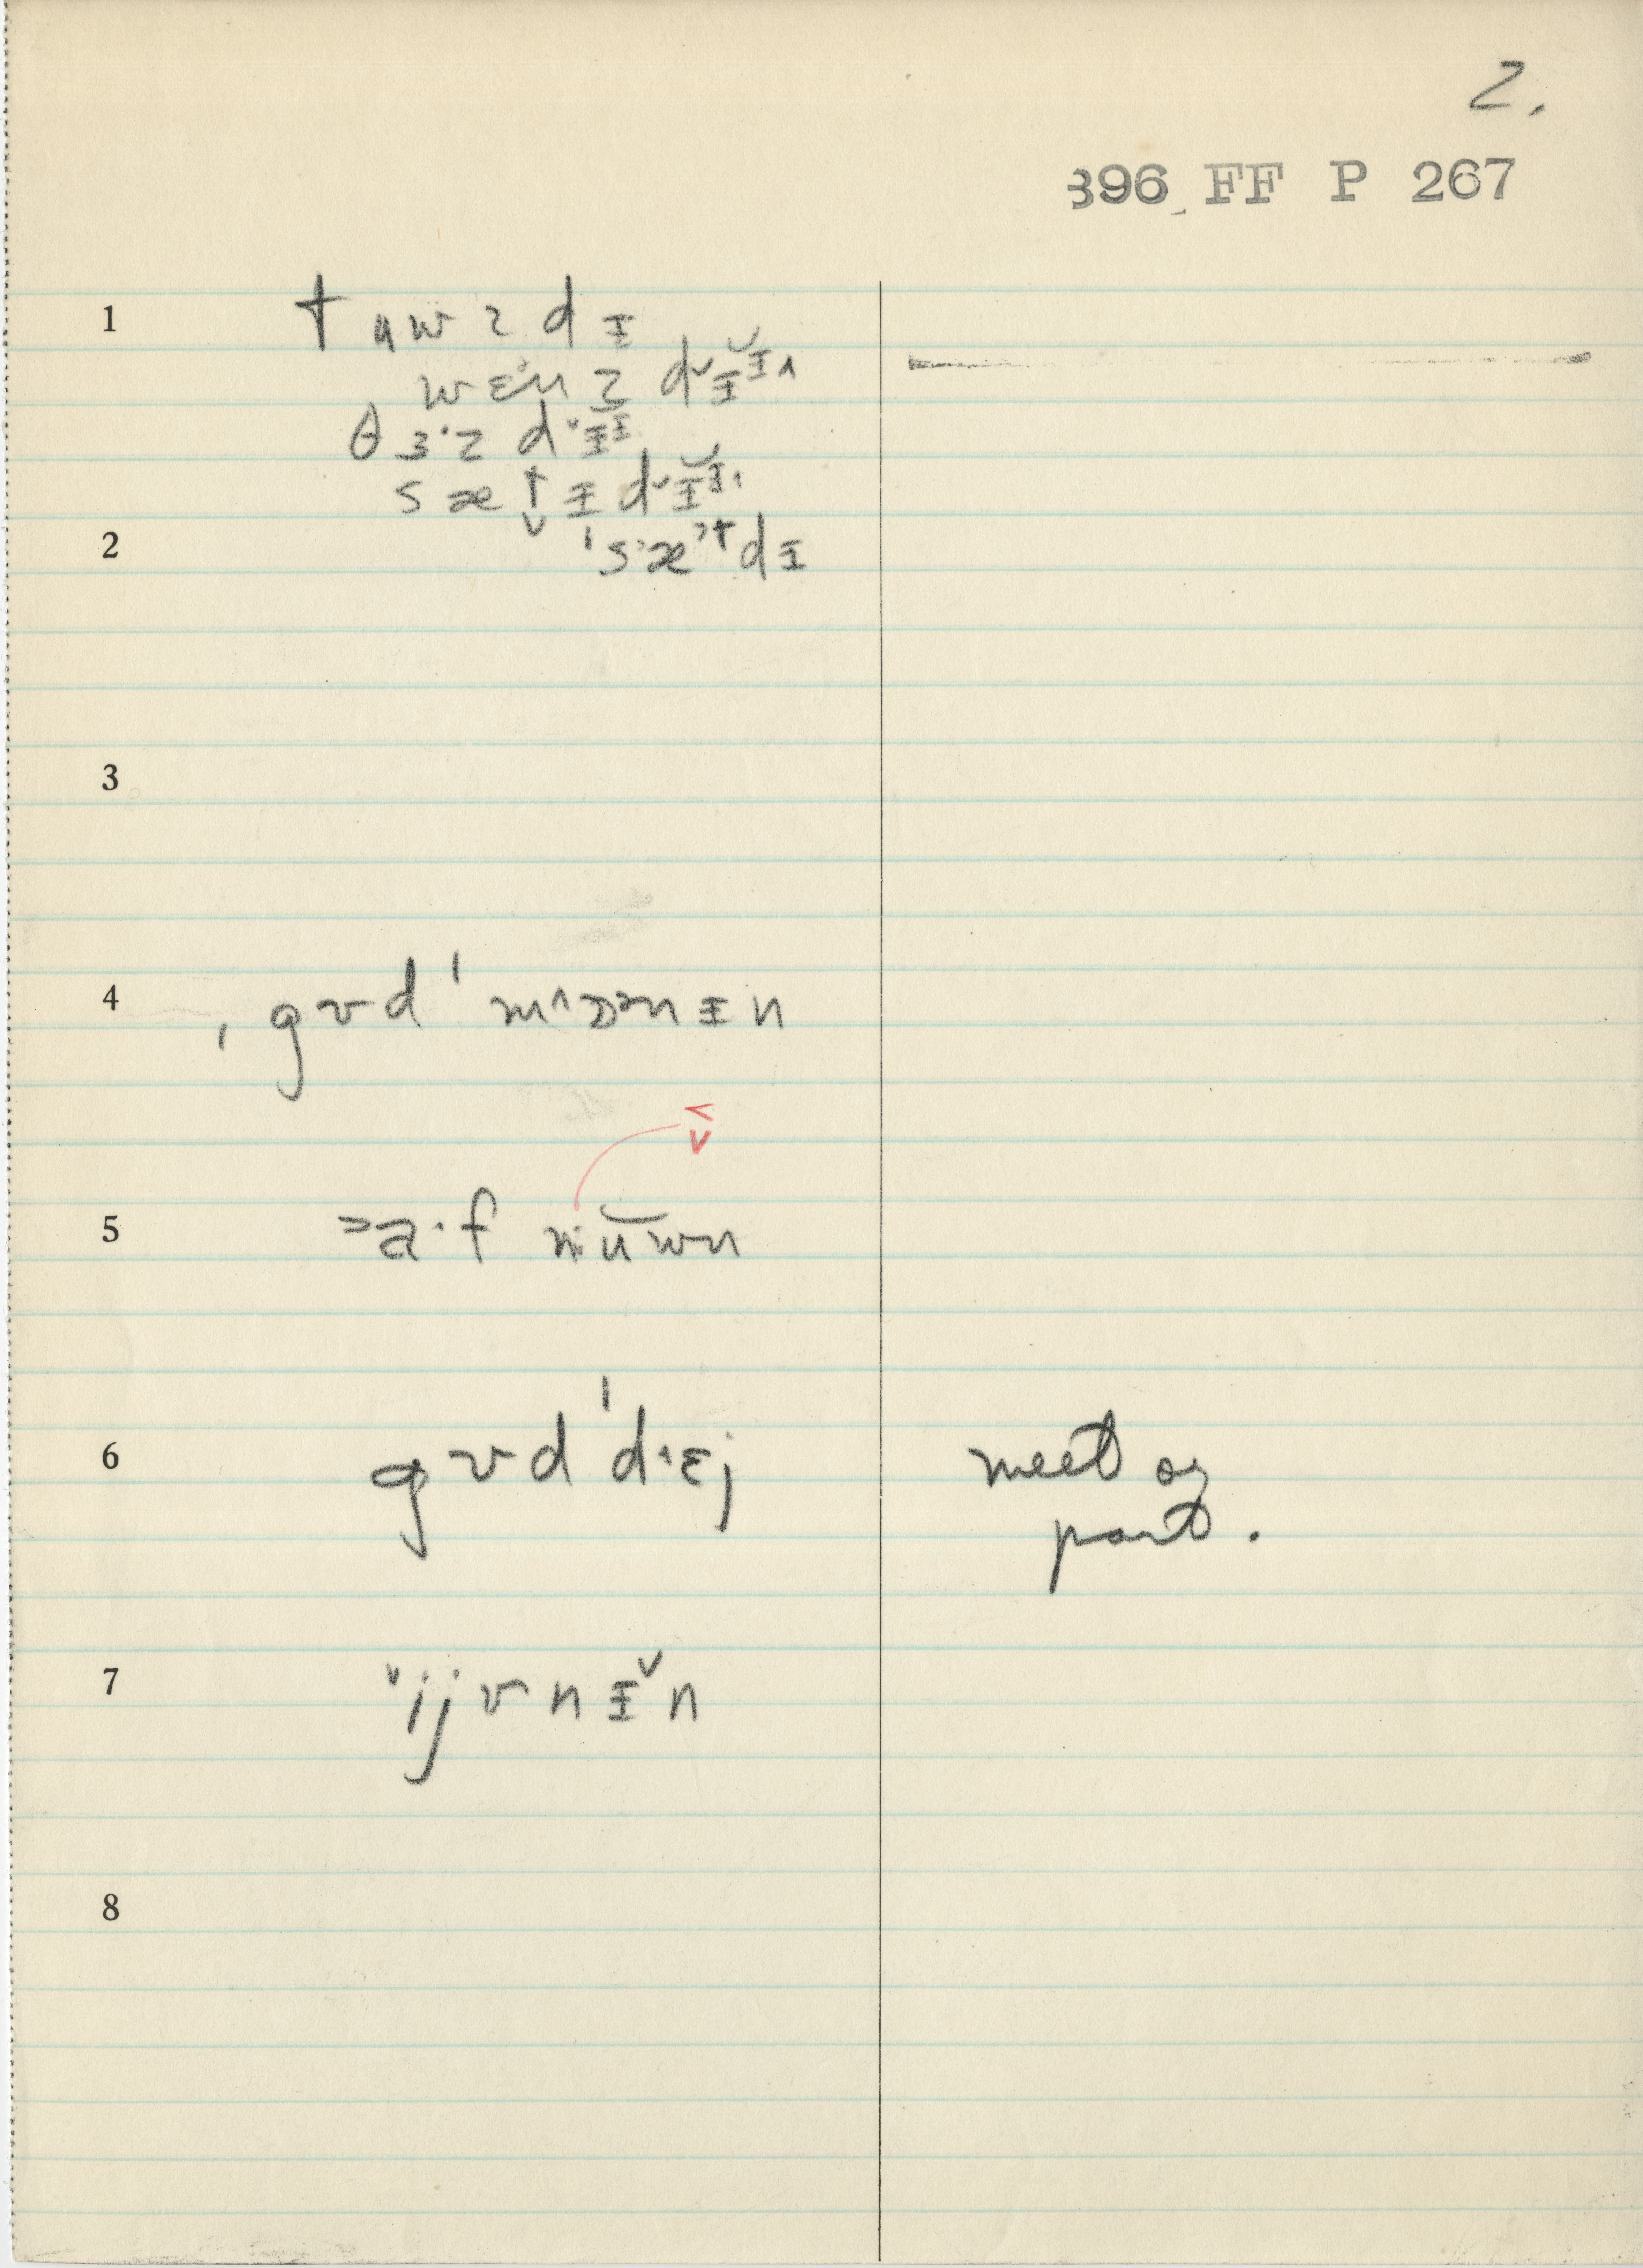 2.
396 FF P 267
1 t ʉ w z d ɪ
w ɛ· n z d ᵛ ɪ̆ ɪ ˄
θ ɜ· z d ᵛ ɪ ɪ
s æ t ɪ d ᵛ ɪ̆ ɪ
2 ˈ s æ t d ɪ
3
4 ˌ g ʊ d ˈ m ˄ ɒ n ɪ n
<
v
5 ˃ a · f n ʉ̆ w n
6 g ʊ d ˈ d · ɛ j
meet or
part.
7 ᵛ i j v n ɪ ᵛ n
8